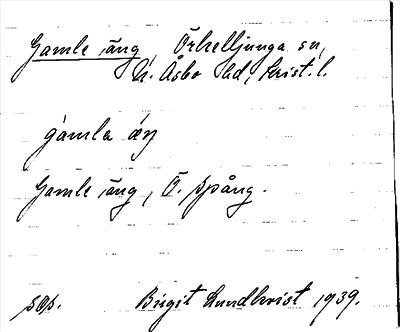 Gamle äng, Örkelljunga sn,
N. Åsbo hd, Krist. l.
gamla äŋ
Gamle äng, Ö. Spång.
sop. Birgit Lundkvist 1939.